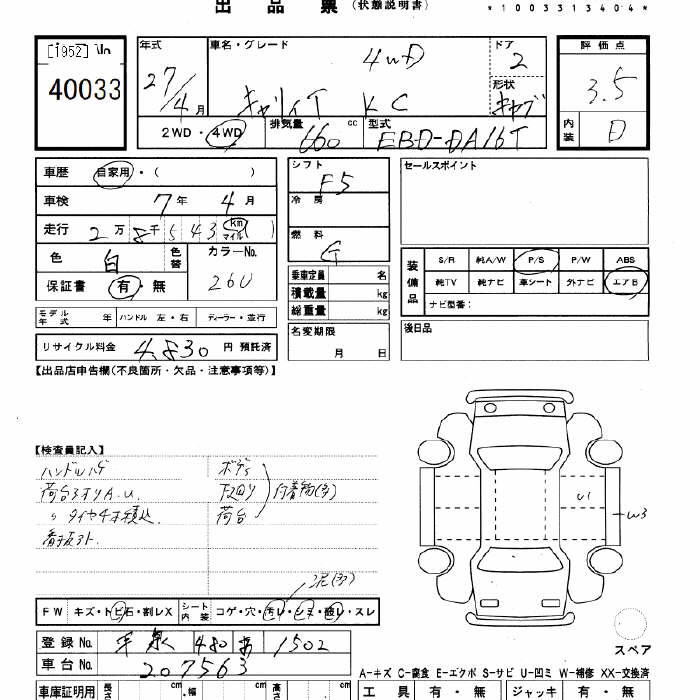 出品票 (状態説明書)
*1003313404*
[1952]
40033
年式
27/4月
車名・グレード
4WD
キャリイT KC
ドア
2
形状
キャブ
評価点
3.5
内装
D
2WD・4WD
排気量
660 cc
型式
EBD-DA16T
車歴 自家用・( )
車検 7年 4月
走行 2万8千543 km マイル ( )
色 白 色替
カラーNo.
26U
保証書 有・無
モデル年式 年 ハンドル 左・右 ディーラー・並行
リサイクル料金 4,830 円 預託済
シフト
F5
冷房
燃料
G
乗車定員 名
積載量 kg
総重量 kg
名変期限
月 日
セールスポイント
装備品
S/R 純A/W P/S P/W ABS
純TV 純ナビ 車シート 外ナビ エアB
ナビ型番:
後日品
【出品店申告欄(不良箇所・欠品・注意事項等)】
【検査員記入】
ハンドルハゲ
荷台
タイヤ4本積込
ボディ
下回り
荷台
付着物(多)
泥(多)
U1
W3
FW キズ・トビ石・割レX シート内装 コゲ・穴・汚レ・シミ・破レ・スレ
登録No. 480 1502
車台No. 207563
スペア
A-キズ C-腐食 E-エクボ S-サビ U-凹ミ W-補修 XX-交換済
車庫証明用 長さ cm ・幅 cm 高さ cm
工具 有・無 ジャッキ 有・無